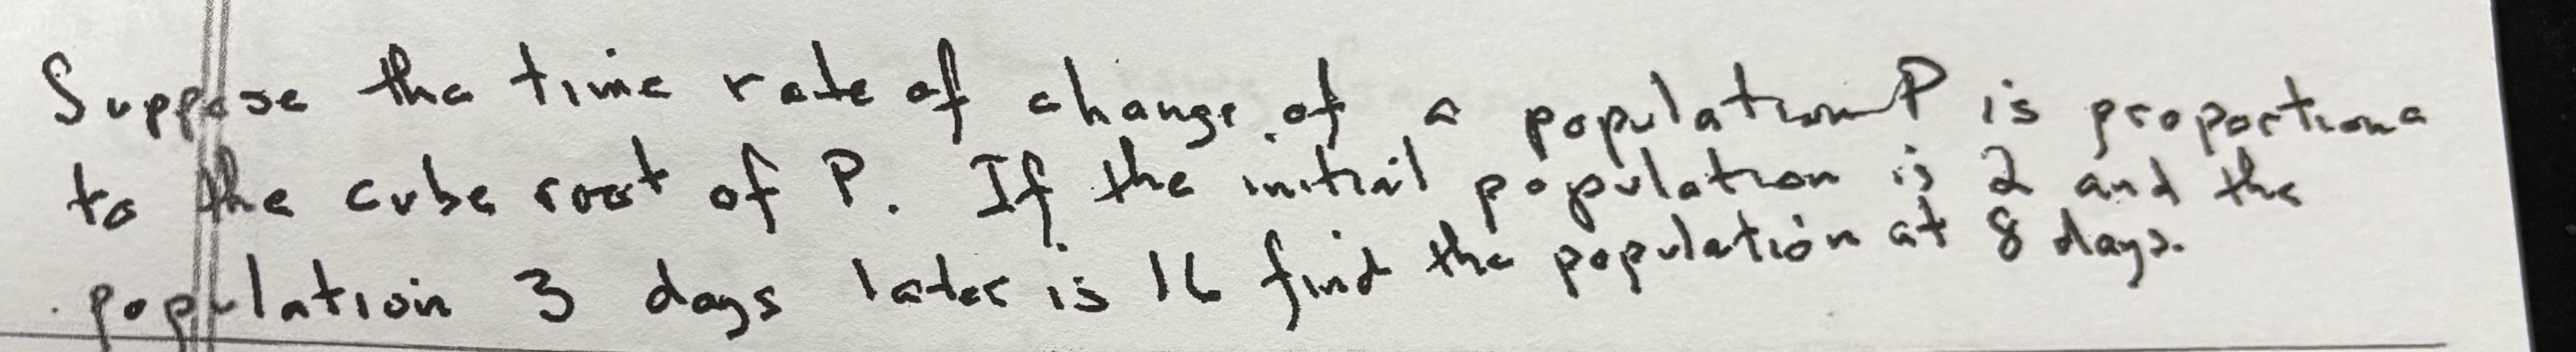 Suppose the time rate of change of a population P is proportiona
to the cube root of P. If the initial population is 2 and the
population 3 days later is 16 find the population at 8 days.